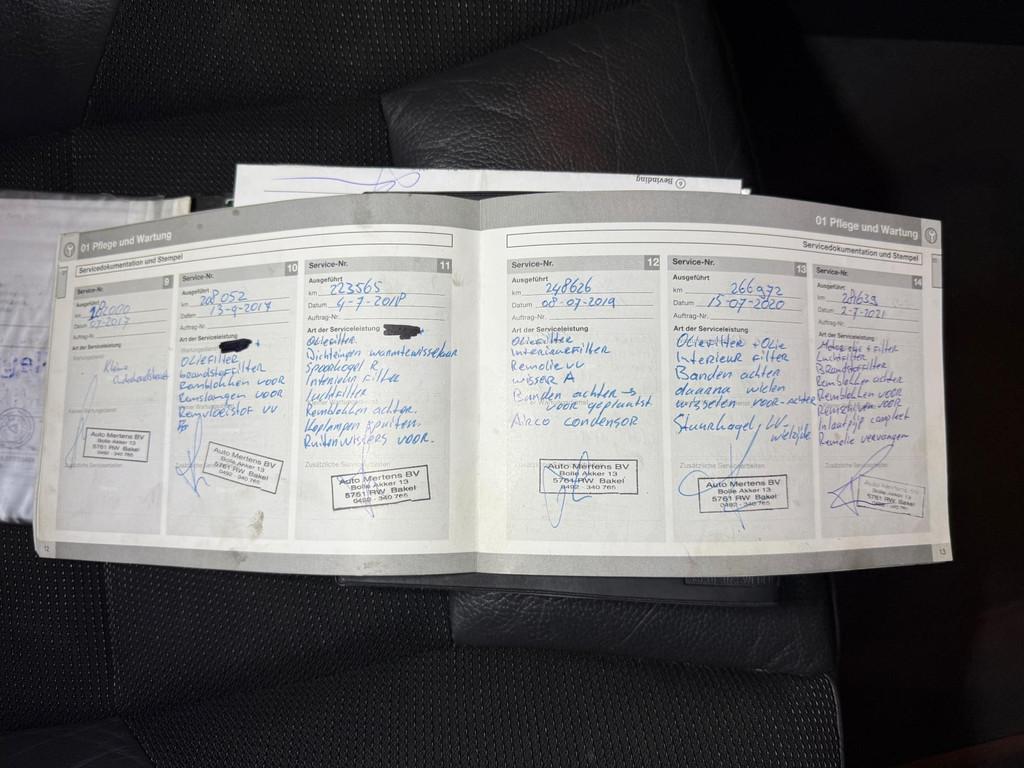 6 Bevinding
01 Pflege und Wartung
Servicedokumentation und Stempel
Service-Nr. 9
Ausgeführt
km
Datum 07-2017
Auftrag-Nr.
Art der Serviceleistung
Kleine
Auto Mertens BV
Bolle Akker 13
5761 RW Bakel
0492 - 340 765
12
Service-Nr. 10
Ausgeführt
km 208052
Datum 13-9-2017
Auftrag-Nr.
Art der Serviceleistung
+
Oliefilter
brandstoffilter
Remblokken voor
Remslangen voor
Remvloeistof vv
Zusätzliche Servicearbeiten
Auto Mertens BV
Bolle Akker 13
5761 RW Bakel
0492 - 340 765
Service-Nr. 11
Ausgeführt
km 223565
Datum 4-7-2018
Auftrag-Nr.
Art der Serviceleistung
+
Oliefilter
Dichtingen warmtewisselaar
Spoorkogel R
Interieur filter
Luchtfilter
Remblokken achter.
Koplampen spuiten.
Ruitenwissers voor.
Zusätzliche Servicearbeiten
Auto Mertens BV
Bolle Akker 13
5761 RW Bakel
0492 - 340 765
01 Pflege und Wartung
Servicedokumentation und Stempel
Service-Nr. 12
Ausgeführt
km 248626
Datum 08-07-2019
Auftrag-Nr.
Art der Serviceleistung
Oliefilter
Interieurfilter
Remolie vv
wisser A
Banden achter →
voor geplaatst
Airco condensor
Zusätzliche Servicearbeiten
Auto Mertens BV
Bolle Akker 13
5761 RW Bakel
0492 - 340 765
Service-Nr. 13
Ausgeführt
km 266972
Datum 15-07-2020
Auftrag-Nr.
Art der Serviceleistung
Oliefilter + Olie
Interieur filter
Banden achter
daarna wielen
wisselen voor-achter
Stuurkogel LV
wielzijde
Zusätzliche Servicearbeiten
Auto Mertens BV
Bolle Akker 13
5761 RW Bakel
0492 - 340 765
Service-Nr. 14
Ausgeführt
km
Datum 2-7-2021
Auftrag-Nr.
Art der Serviceleistung
Motorolie + Filter
Luchtfilter
Brandstoffilter
Remblokken achter
Remblokken voor
Remschijven voor
Inlaatpijp compleet
Remolie vervangen
Zusätzliche Servicearbeiten
Auto Mertens BV
Bolle Akker 13
5761 RW Bakel
0492 - 340 765
13